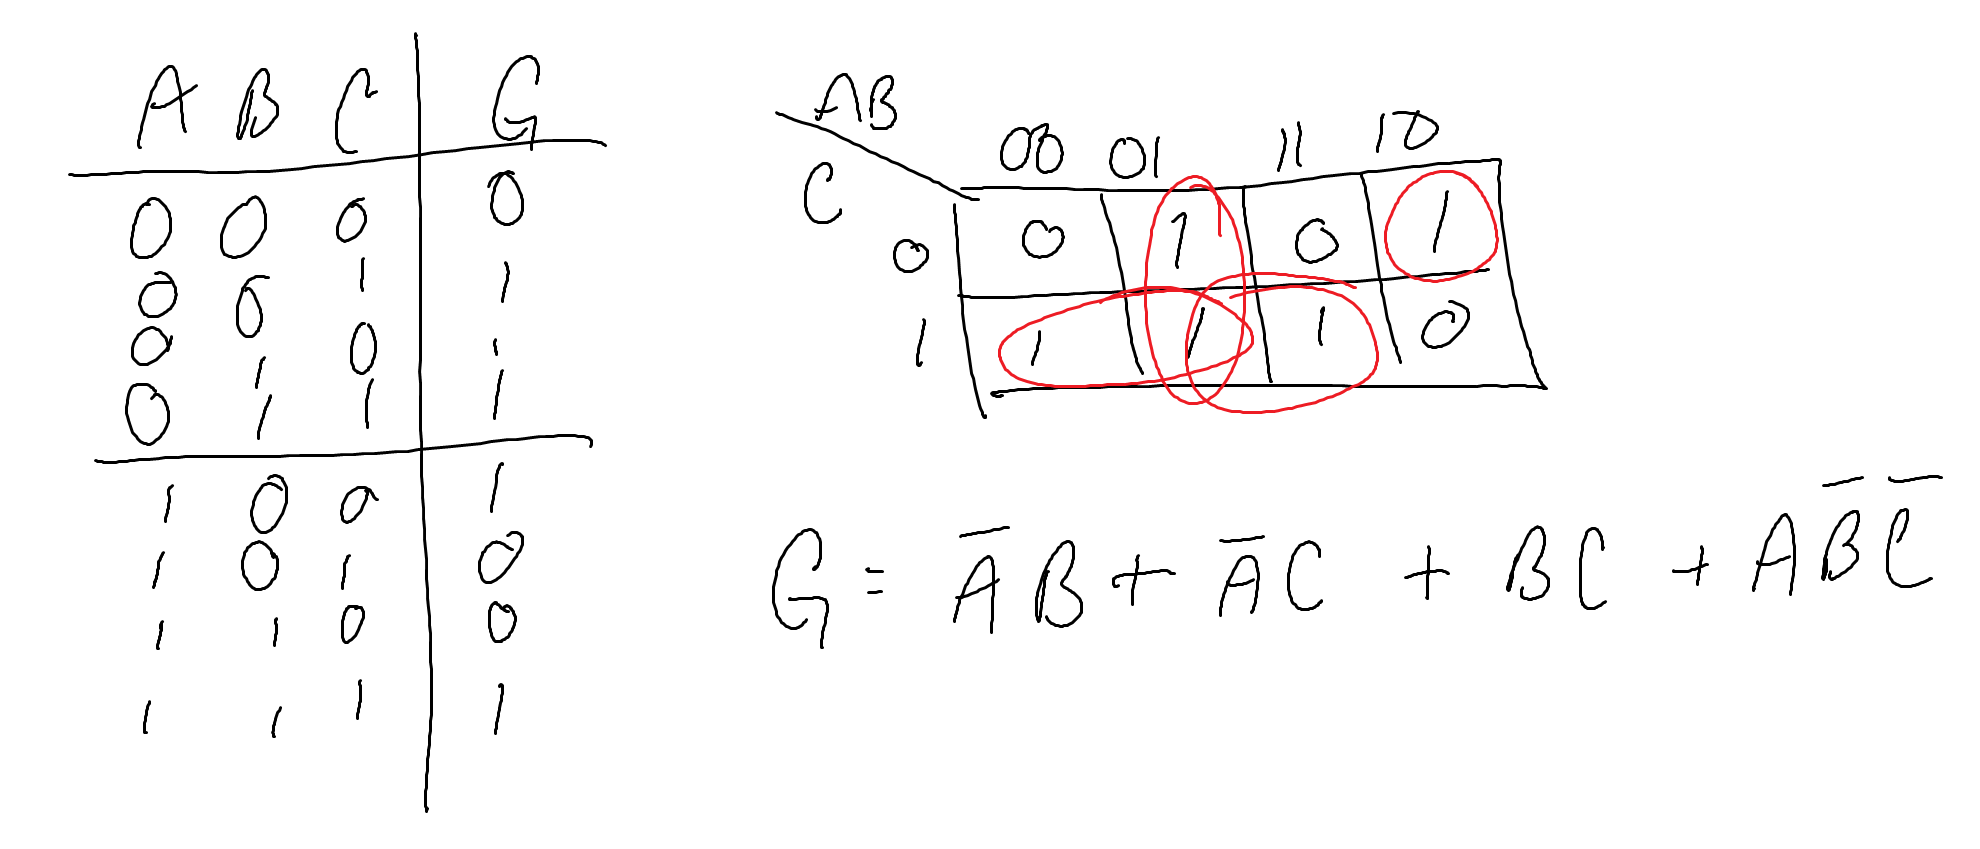 A B C G
0 0 0 0
0 0 1 1
0 1 0 1
0 1 1 1
1 0 0 1
1 0 1 0
1 1 0 0
1 1 1 1
AB
C
00 01 11 10
0 0 1 0 1
1 1 1 1 0
G = A̅B + A̅C + BC + AB̅C̅